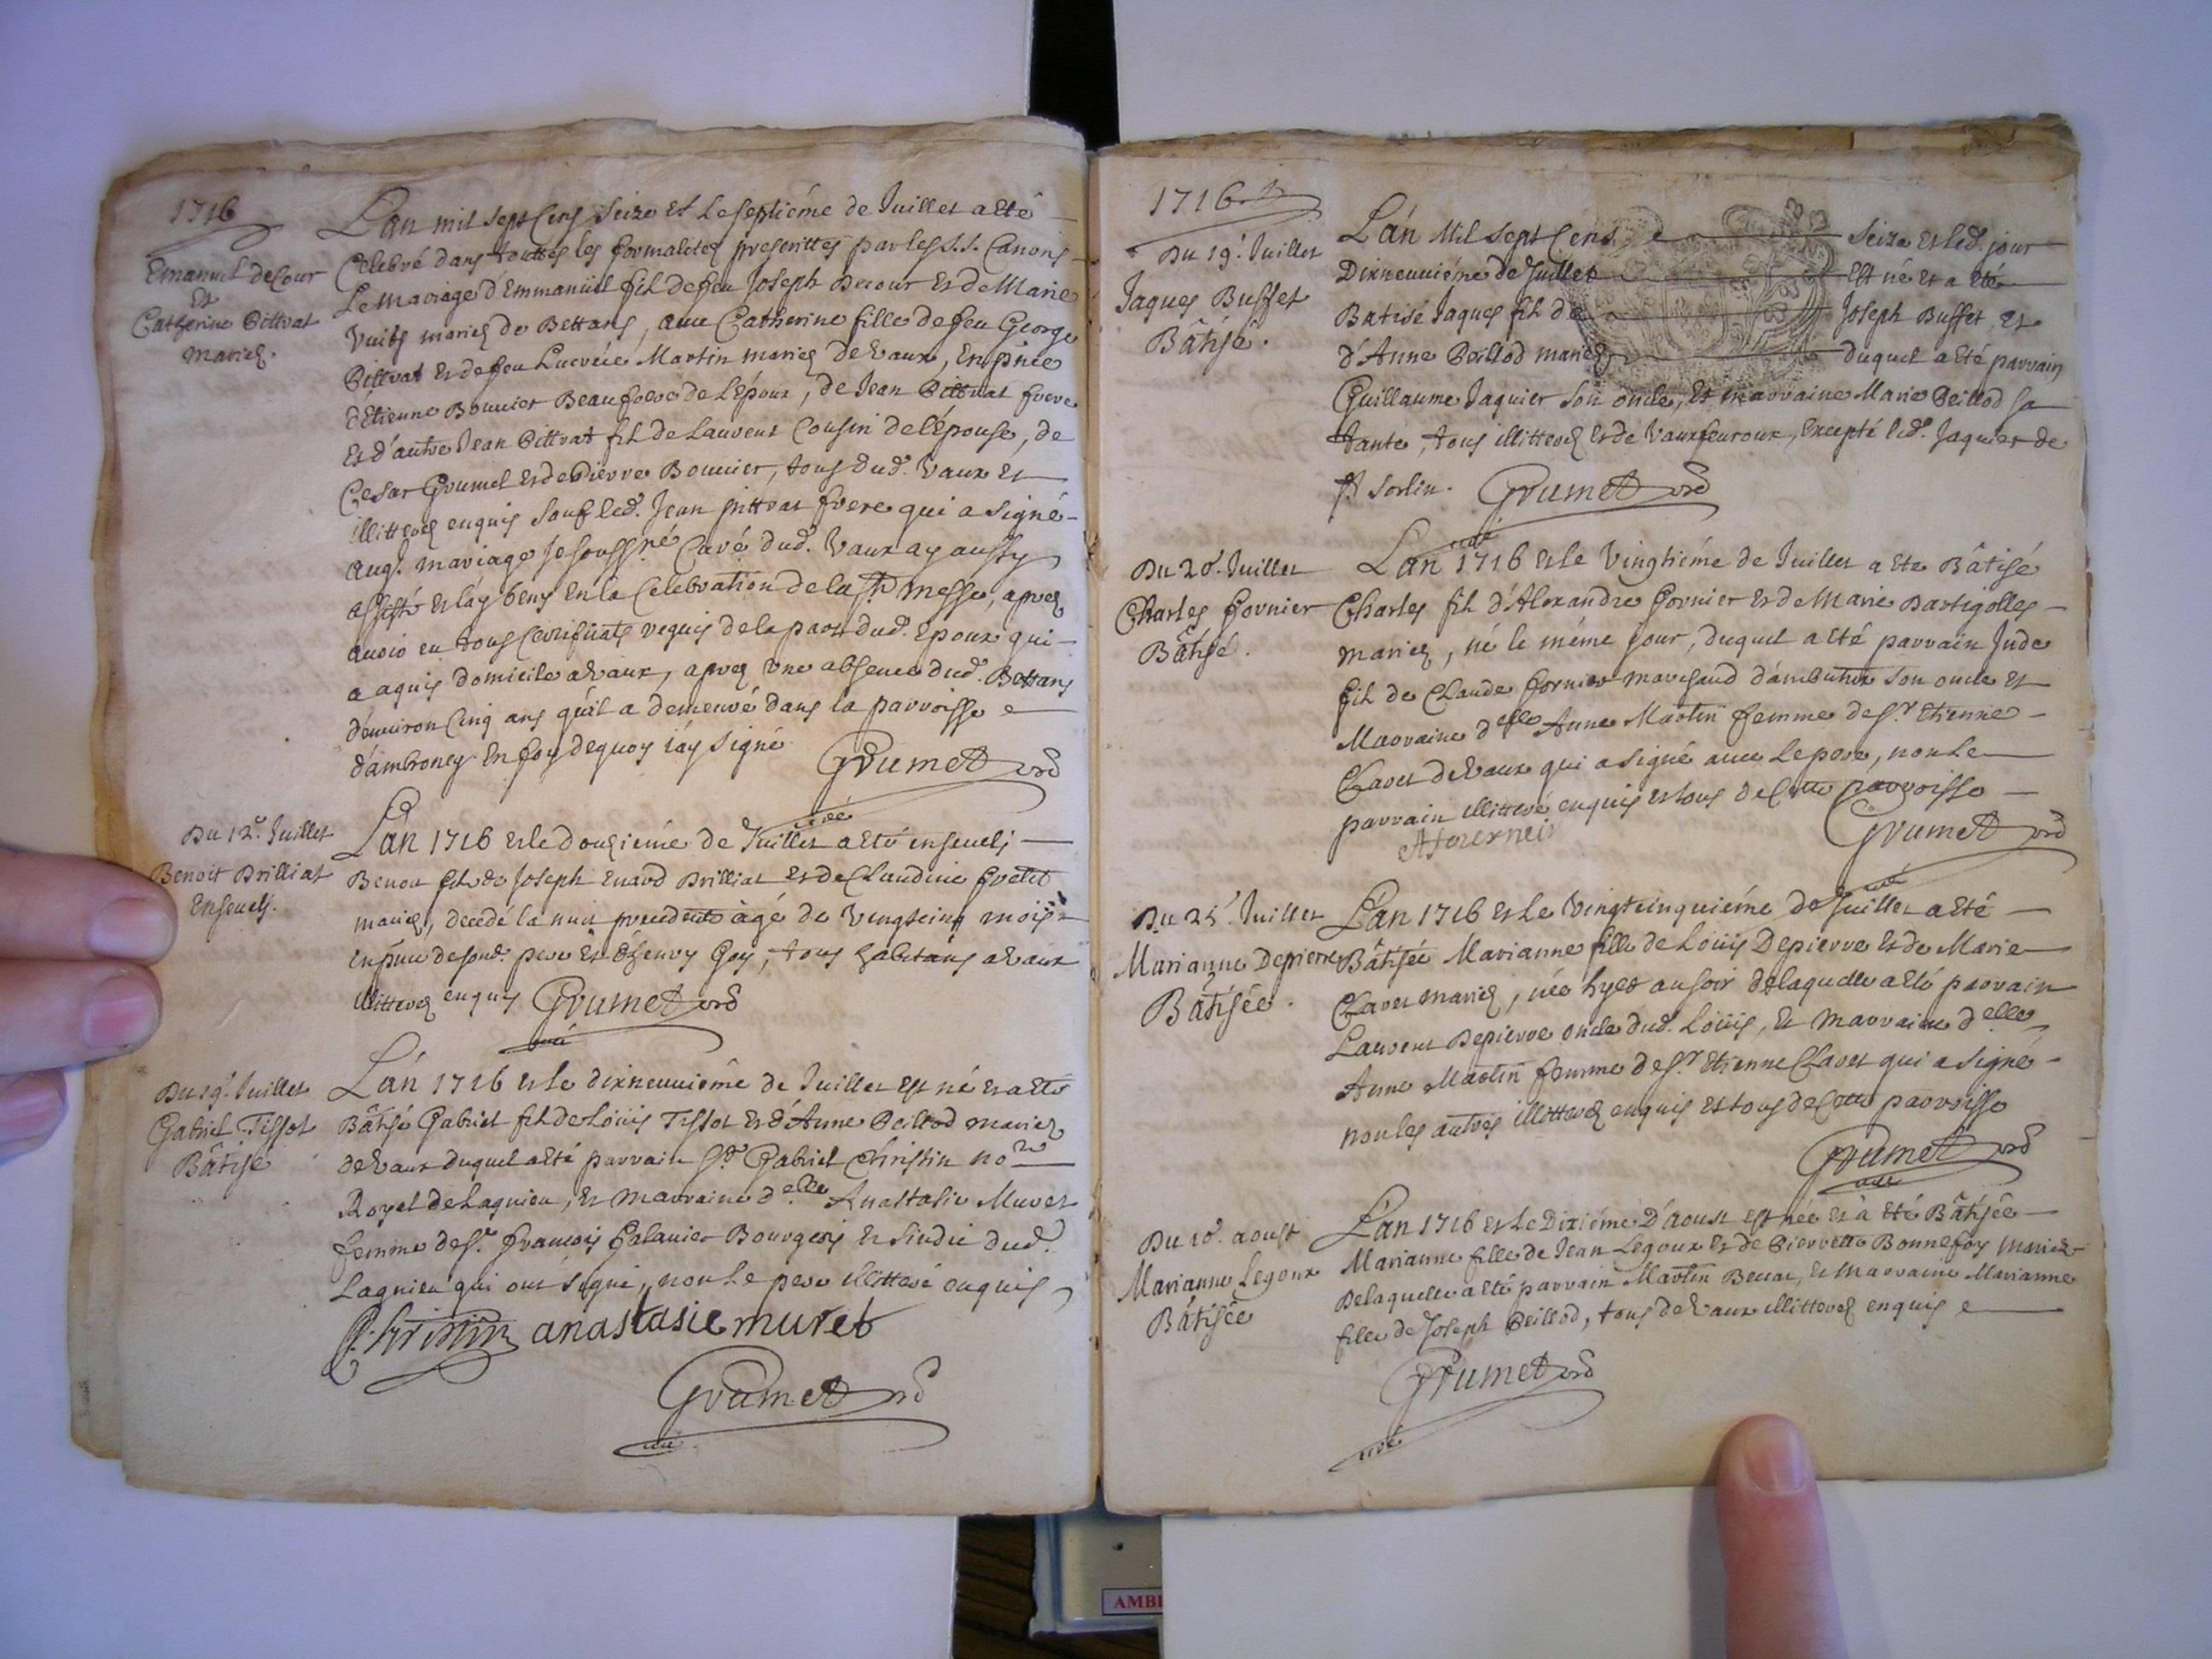 1716
Emanuel deCour
Et
Catherine Pittrat
mariez.
Lan mil sept Cens Seize Et Le septiéme de Juillet a Eté
Celebré dans touttes les formalitez prescrittes par les S.S. Canons
Le mariage d'Emmanuël fils de feu Joseph Decour Et de Marie
mariez de Bettans, avec Catherine fille de feu George
Pittrat Et de feu Lucréce Martin mariez de Vaux, En pnce
d'Etienne Bouvier Beaufrere de L'époux, de Jean Pittrat frere
Et d'autre Jean Pittrat fils de Laurent Cousin de l'épouse, de
Cesar Grumet Et de Pierre Bouvier, tous dud. Vaux Et
illitterez enquis Sauf led. Jean pittrat frere qui a signé
auql. mariage Je soussné Curé dud. Vaux ay aussy
assisté Et láy beny En la Celebration de la Ste messe, aprez
avoir eu tous Certificats requis de la part dud. Epoux qui
a aquis domicile a Vaux, aprez une absence dud. Bettans
d'environ Cinq ans qu'il a demeuré dans la parroisse
d'ambroney. En foy dequoy j'áy signé
Grumet
curé
Du 12e. Juillet
Benoit Brilliat
Ensevely.
Lan 1716 et le douziéme de Juillet a eté enseveli
Benoit fils de Joseph Enard Brilliat et de Claudine
mariez, decedé la nuit precedente àgé de Vingtcinq mois
en pnce de sond. pere Et d'henry Goy, tous habitans a Vaux
illitterez enquis Grumet
curé
Du 19e. Juillet
Gabriel Tissot
Bâtisé
Lán 1716 et le dixneuviéme de Juillet est né et a eté
Bâtisé Gabriel fils de Loüis Tissot Et d'Anne Peillod mariez
de Vaux duquel a eté parrain Sr. Gabriel Christin nore
Royal de Lagnieu, Et marraine delle Anastasie Muret
femme de Sr. françois Galanier Bourgeois Et Sindic dud.
Lagnieu qui ont signé, non Le pere illitteré enquis
Christin anastasie muret
Grumet
curé
1716
Du 19e. Juillet
Jaques Buffet
Bâtisé.
Lán Mil sept Cens Seize Et led. jour
Dixneuviéme de Juillet Est né et a eté
Batisé Jaques fils de Joseph Buffet, et
d'Anne Peillod mariez duquel a eté parrain
Guillaume Jaquier son oncle, Et marraine Marie Peillod sa
tante, tous illitterez et de Vauxfevroux, Excepté led. Jaquier de
St Sorlin. Grumet
curé
Du 20e. Juillet
Charles fornier
Bâtisé.
Lan 1716 et le Vingtiéme de Juillet a ete Bâtisé
Charles fils d'Alexandre fornier et de Marie Bartigolles
mariez, né le méme jour, duquel a eté parrain Jude
fils de Claude fornier marchand d'ambutrix son oncle et
Marraine delle Anne Martin femme de Sr. Etienne
Claret de Vaux qui a signé avec Le pere, non Le
parrain illitteré enquis et tous de Cette parroisse
Afournier
Grumet
curé
Du 25e. Juillet
Marianne Depierre
Bâtisée.
Lán 1716 et Le Vingtcinquiéme de Juillet a eté
Bâtisée Marianne fille de Loüis Depierre et de Marie
Claret mariez, née hyer au soir de laquelle a eté parrain
Laurent Depierre oncle dud. Loüis, et marraine delle
Anne Martin femme de Sr. Etienne Claret qui a signé
non les autres illitterez enquis et tous de Cette parroisse
Grumet
curé
Du 10e. aoust
Marianne Legoux
Bâtisée
Lán 1716 et Le Dixiéme d'aoust est née et à eté Bâtisée
Marianne fille de Jean Legoux et de Pierrette Bonnefoy mariez
De laquelle a eté parrain Martin et marraine Marianne
fille de Joseph Peillod, tous de Vaux illitterez enquis
Grumet
curé
AMB